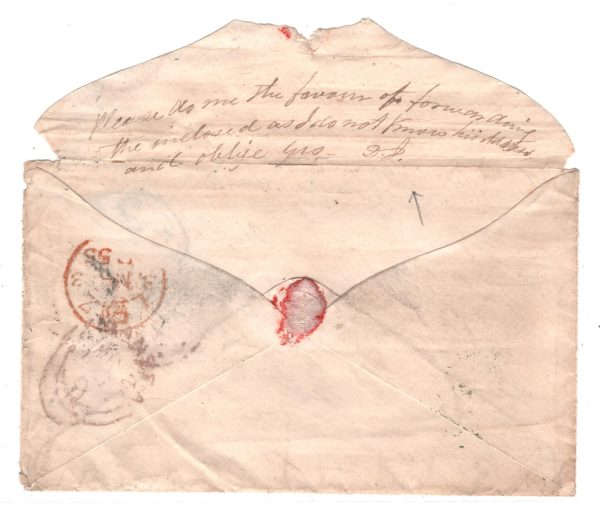 Please do me the favour of forwarding
the inclosed as I do not know his address
and oblige yrs. D.J.